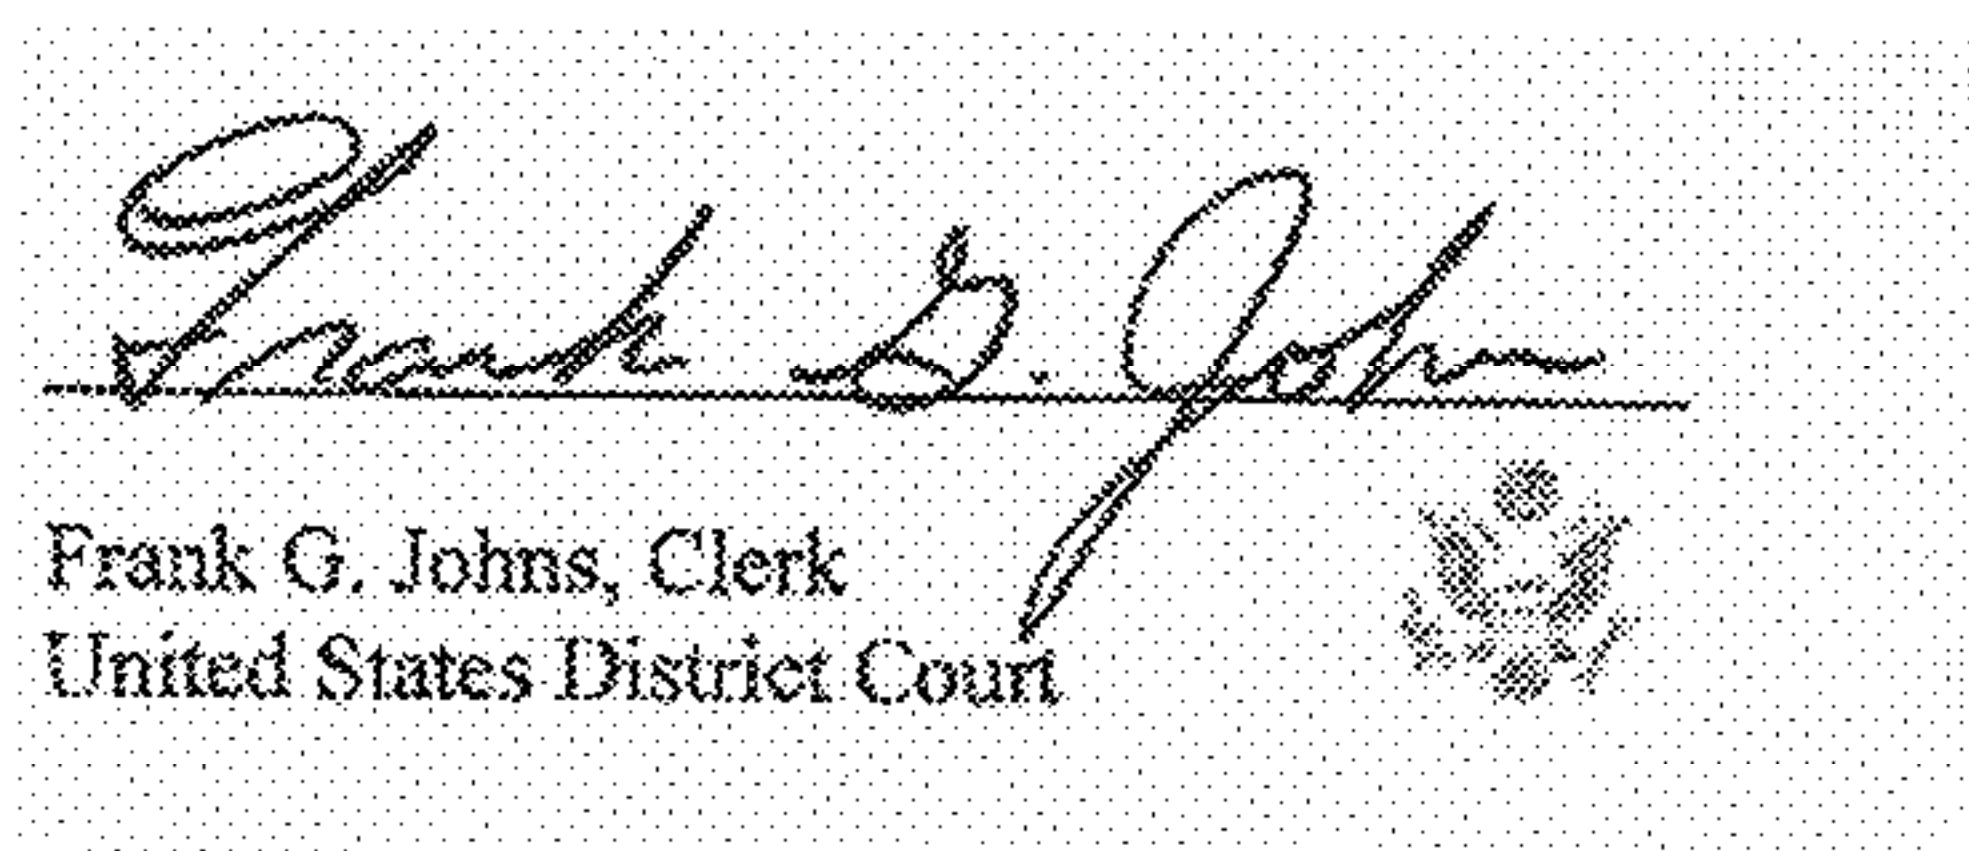 Frank G. Johns
Frank G. Johns, Clerk
United States District Court